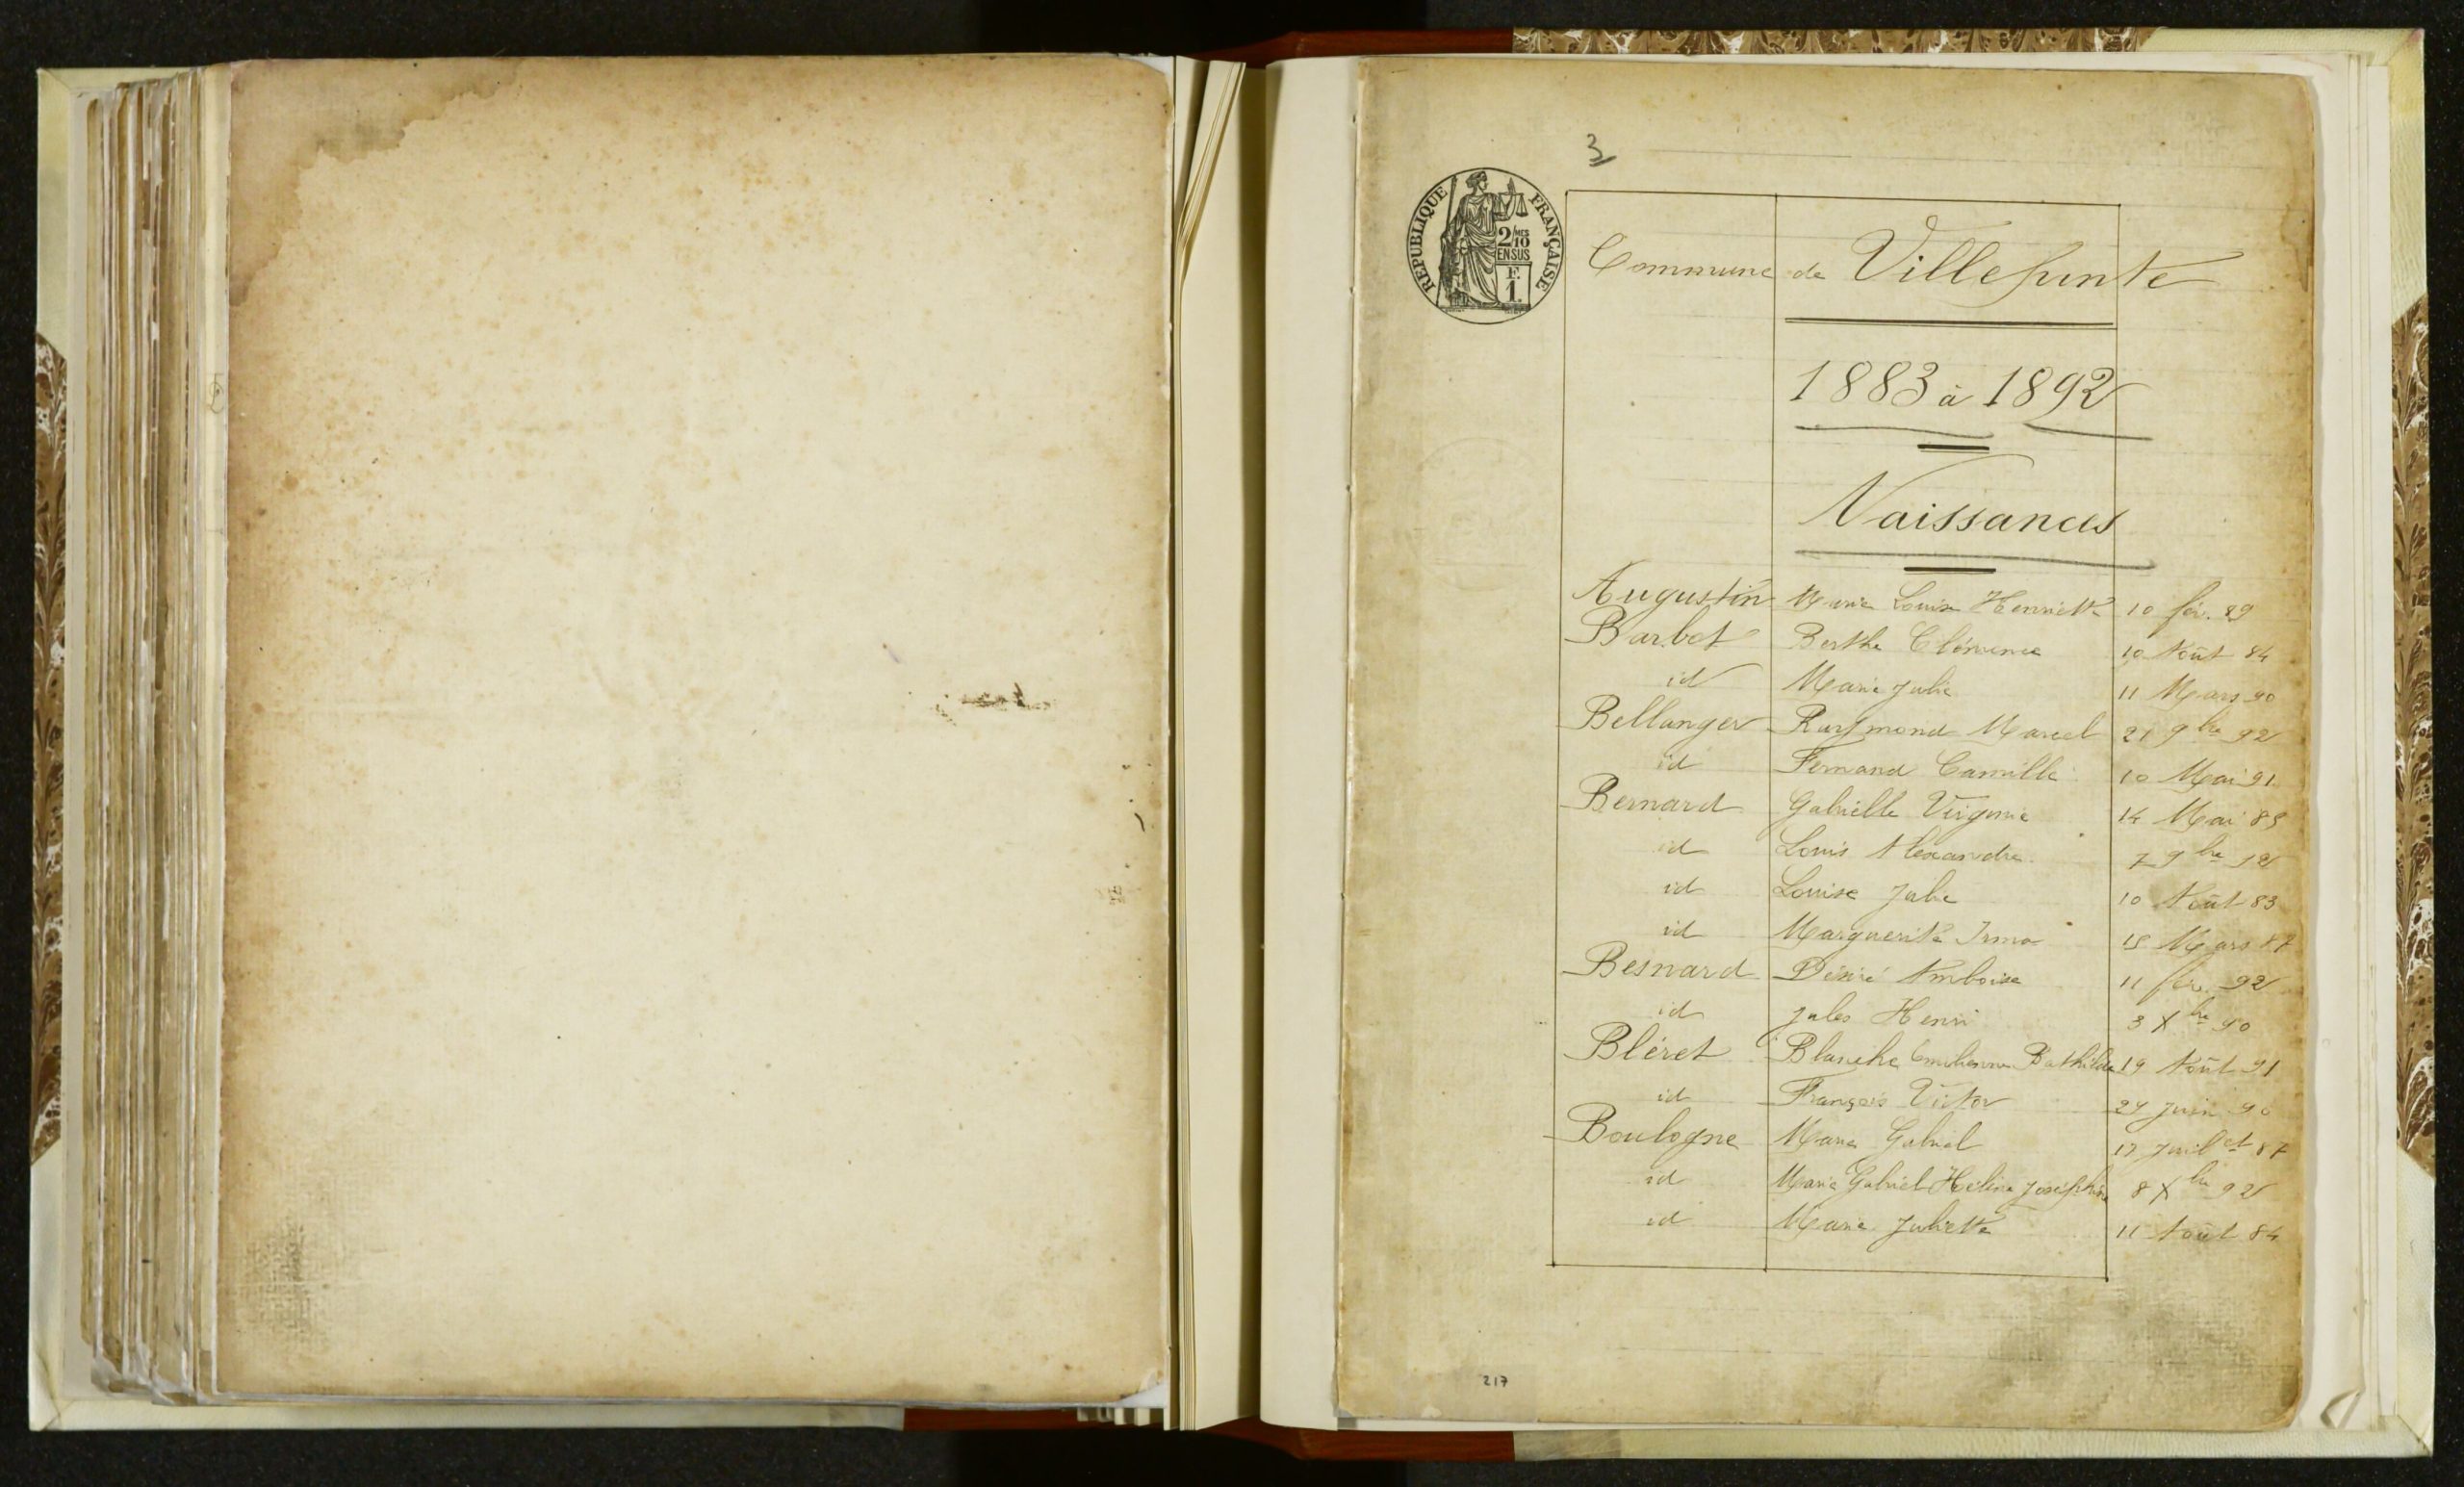 3
REPUBLIQUE FRANÇAISE
2/10 MES
EN SUS
F.
1.
Commune de Villepinte
1883 à 1892
Naissances
Augustin Marie Louise Henriette 10 fév. 89
Barbot Berthe Clémence 10 Août 84
id Marie Julie 11 Mars 90
Bellanger Raymond Marcel 21 9bre 92
id Fernand Camille 10 Mai 91
Bernard Gabrielle Virginie 14 Mai 85
id Louis Alexandre 7 9bre 92
id Louise Julie 10 Août 83
id Marguerite Irma Mars 87
Besnard Désiré Amboise 11 fév. 92
id Jules Henri 3 Xbre 90
Bléret Blanche Emilienne Bathilde 19 Août 91
id François Victor Juin 90
Boulogne Marie Gabriel Juillet 87
id Marie Gabriel Hélène Joséphine 8 Xbre 92
id Marie Juliette 11 Août 84
217